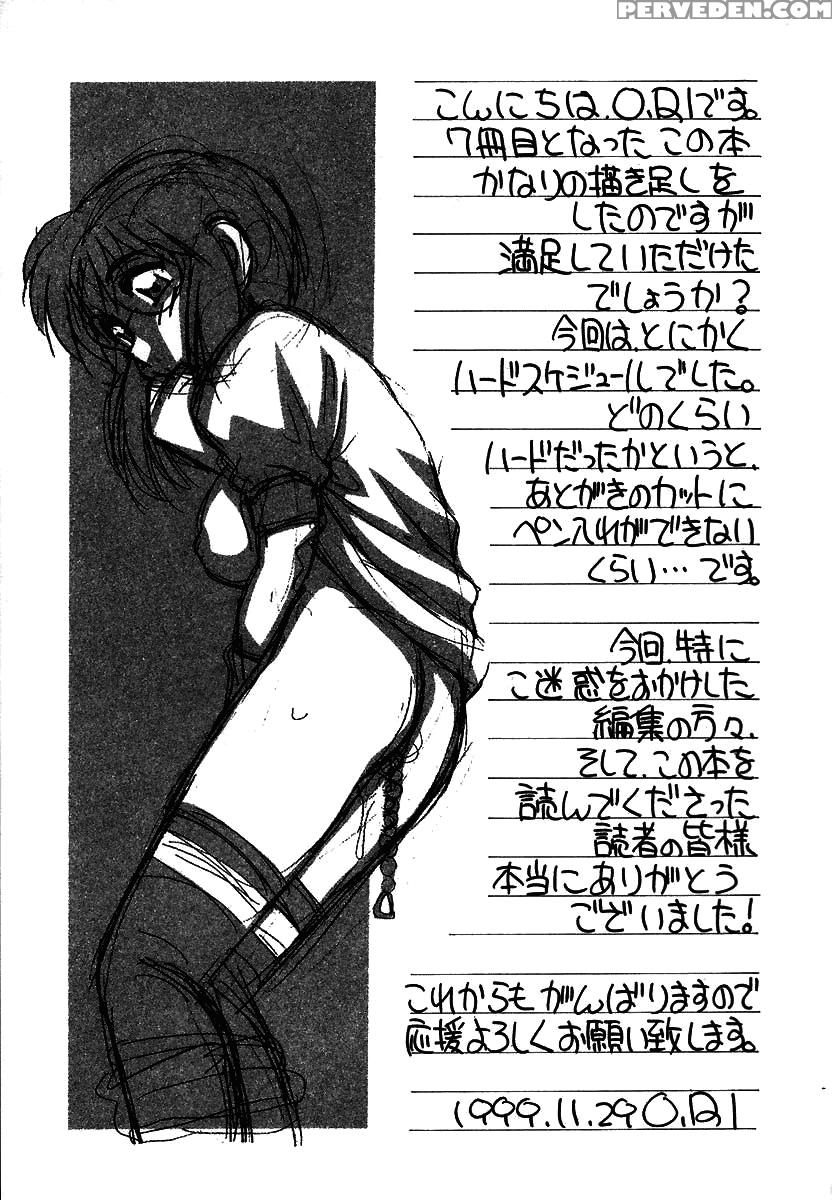 PERVEDEN.COM
こんにちは、O.RIです。
7冊目となったこの本
かなりの描き足しを
したのですが
満足していただけた
でしょうか?
今回は、とにかく
ハードスケジュールでした。
どのくらい
ハードだったかというと、
あとがきのカットに
ペン入れができない
くらい…です。
今回、特に
ご迷惑をおかけした
編集の方々、
そして、この本を
読んでくださった
読者の皆様
本当にありがとう
ございました!
これからもがんばりますので
応援よろしくお願い致します。
1999.11.29 O.RI